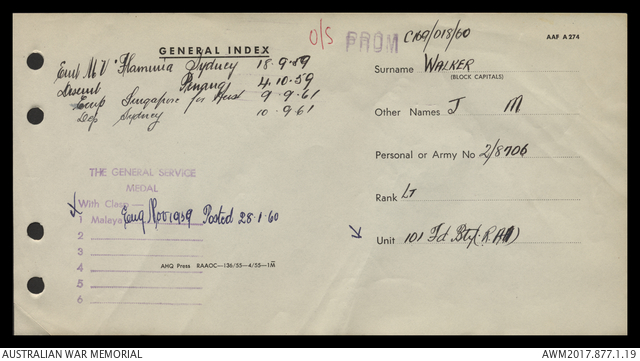 O/S PROM C169/018/60
AAF A274
GENERAL INDEX
Emb M V "Flaminia Sydney 18.9.59
Disemb Penang 4.10.59
Emp Singapore for Aust 9.9.61
Dep Sydney 10.9.61
Surname WALKER
(BLOCK CAPITALS)
Other Names J M
Personal or Army No 2/8706
Rank LT
Unit 101 Fd Bty
THE GENERAL SERVICE
MEDAL
With Clasp
1 Malaya Posted 28.1.60
2
3
4
5
6
AHQ Press RAAOC—136/55—4/55—1M
AUSTRALIAN WAR MEMORIAL
AWM2017.877.1.19